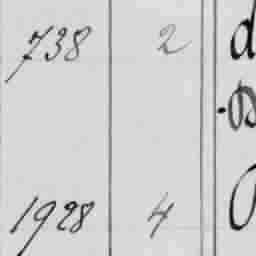 738 2 d
1928 4